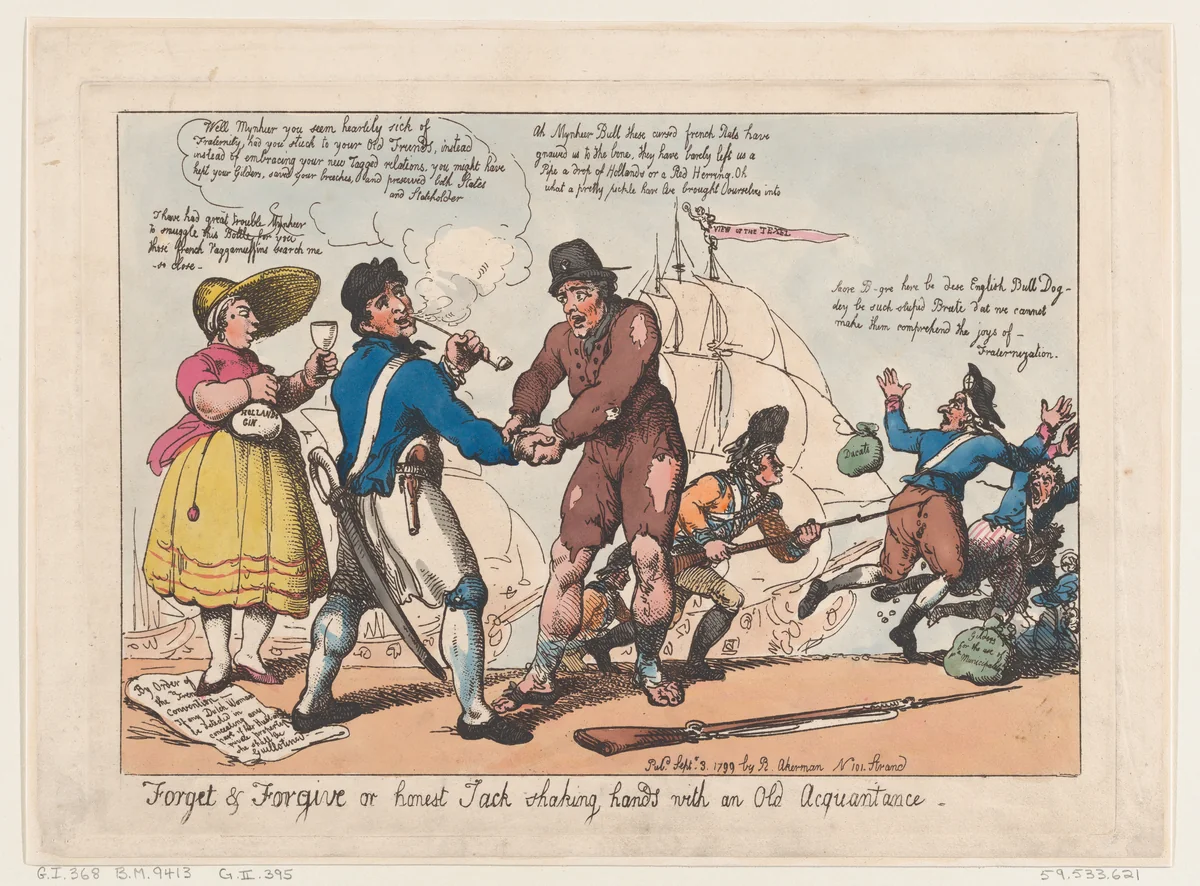 Well Mynheer you seem heartily sick of
Fraternity, had you stuck to your Old Friends, instead
instead of embracing your new Tagged relations, you might have
kept your Gilders, saved your breeches, and preserved both States
and Stateholder
Ah Mynheer Bull these cursed french Rats have
gnawed us to the bone, they have barely left us a
Pipe a drop of Hollands or a Red Herring. Oh
what a pretty pickle have we brought Ourselves into
I have had great trouble Mynheer
to smuggle this Bottle for you
those french raggamuffins search me
- so close -
VIEW of THE TEXEL
Sacre B-gre here be dese English Bull Dog -
dey be such stupid Brute dat we cannot
make them comprehend the joys of -
Fraternization.
HOLLANDS
GIN.
Ducats
Gilders
for the use of
Municipality
By Order of
the French
Convention
If any Dutch Woman
be detected in
concealing any
part of her Husbands
private property
she shall be
Guillotined
Pub.d Sept.r 3. 1799 by R. Akerman N 101. Strand
Forget & Forgive or honest Jack shaking hands with an Old Acquantance -
G.I.368 B.M.9413 G.II.395
59.533.621